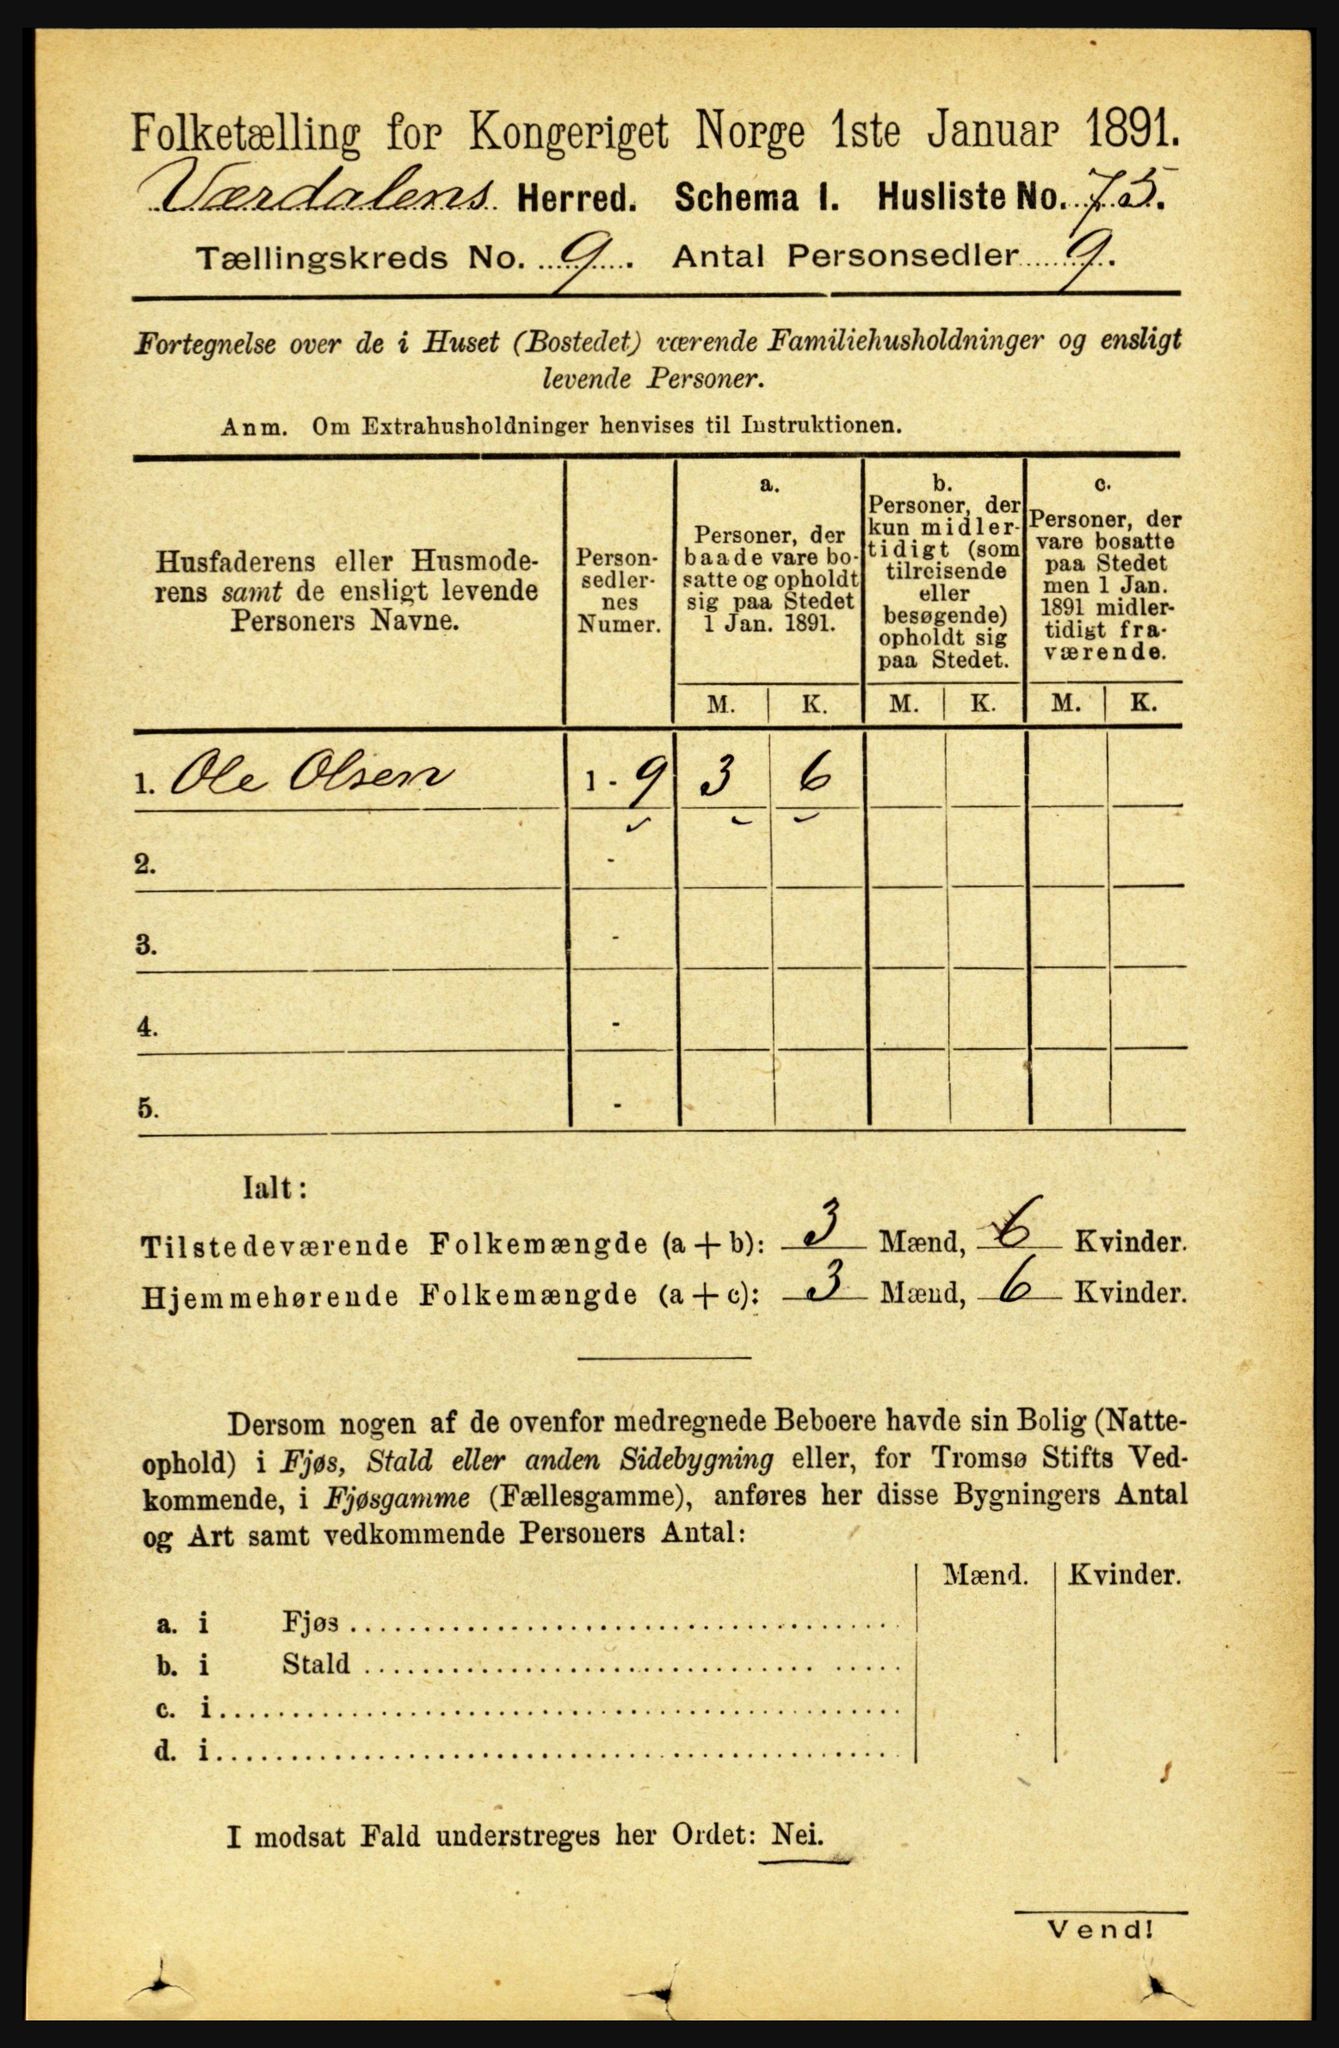 Folketælling for Kongeriget Norge 1ste Januar 1891.
Værdalens Herred. Schema I. Husliste No. 75.
Tællingskreds No. 9. Antal Personsedler 9.
Fortegnelse over de i Huset (Bostedet) værende Familiehusholdninger og ensligt
levende Personer.
Anm. Om Extrahusholdninger henvises til Instruktionen.
Husfaderens eller Husmode-
rens samt de ensligt levende
Personers Navne.
Person-
sedler-
nes
Numer.
a.
Personer, der
baade vare bo-
satte og opholdt
sig paa Stedet
1 Jan. 1891.
b.
Personer, der
kun midler-
tidigt (som
tilreisende
eller
besøgende)
opholdt sig
paa Stedet.
c.
Personer, der
vare bosatte
paa Stedet
men 1 Jan.
1891 midler-
tidigt fra-
værende.
M. K. M. K. M. K.
1. Ole Olsen 1 - 9 3 6
2. -
3. -
4. -
5. -
Ialt:
Tilstedeværende Folkemængde (a + b): 3 Mænd, 6 Kvinder.
Hjemmehørende Folkemængde (a + c): 3 Mænd, 6 Kvinder.
Dersom nogen af de ovenfor medregnede Beboere havde sin Bolig (Natte-
ophold) i Fjøs, Stald eller anden Sidebygning eller, for Tromsø Stifts Ved-
kommende, i Fjøsgamme (Fællesgamme), anføres her disse Bygningers Antal
og Art samt vedkommende Personers Antal:
Mænd. Kvinder.
a. i Fjøs
b. i Stald
c. i
d. i
I modsat Fald understreges her Ordet: Nei.
Vend!